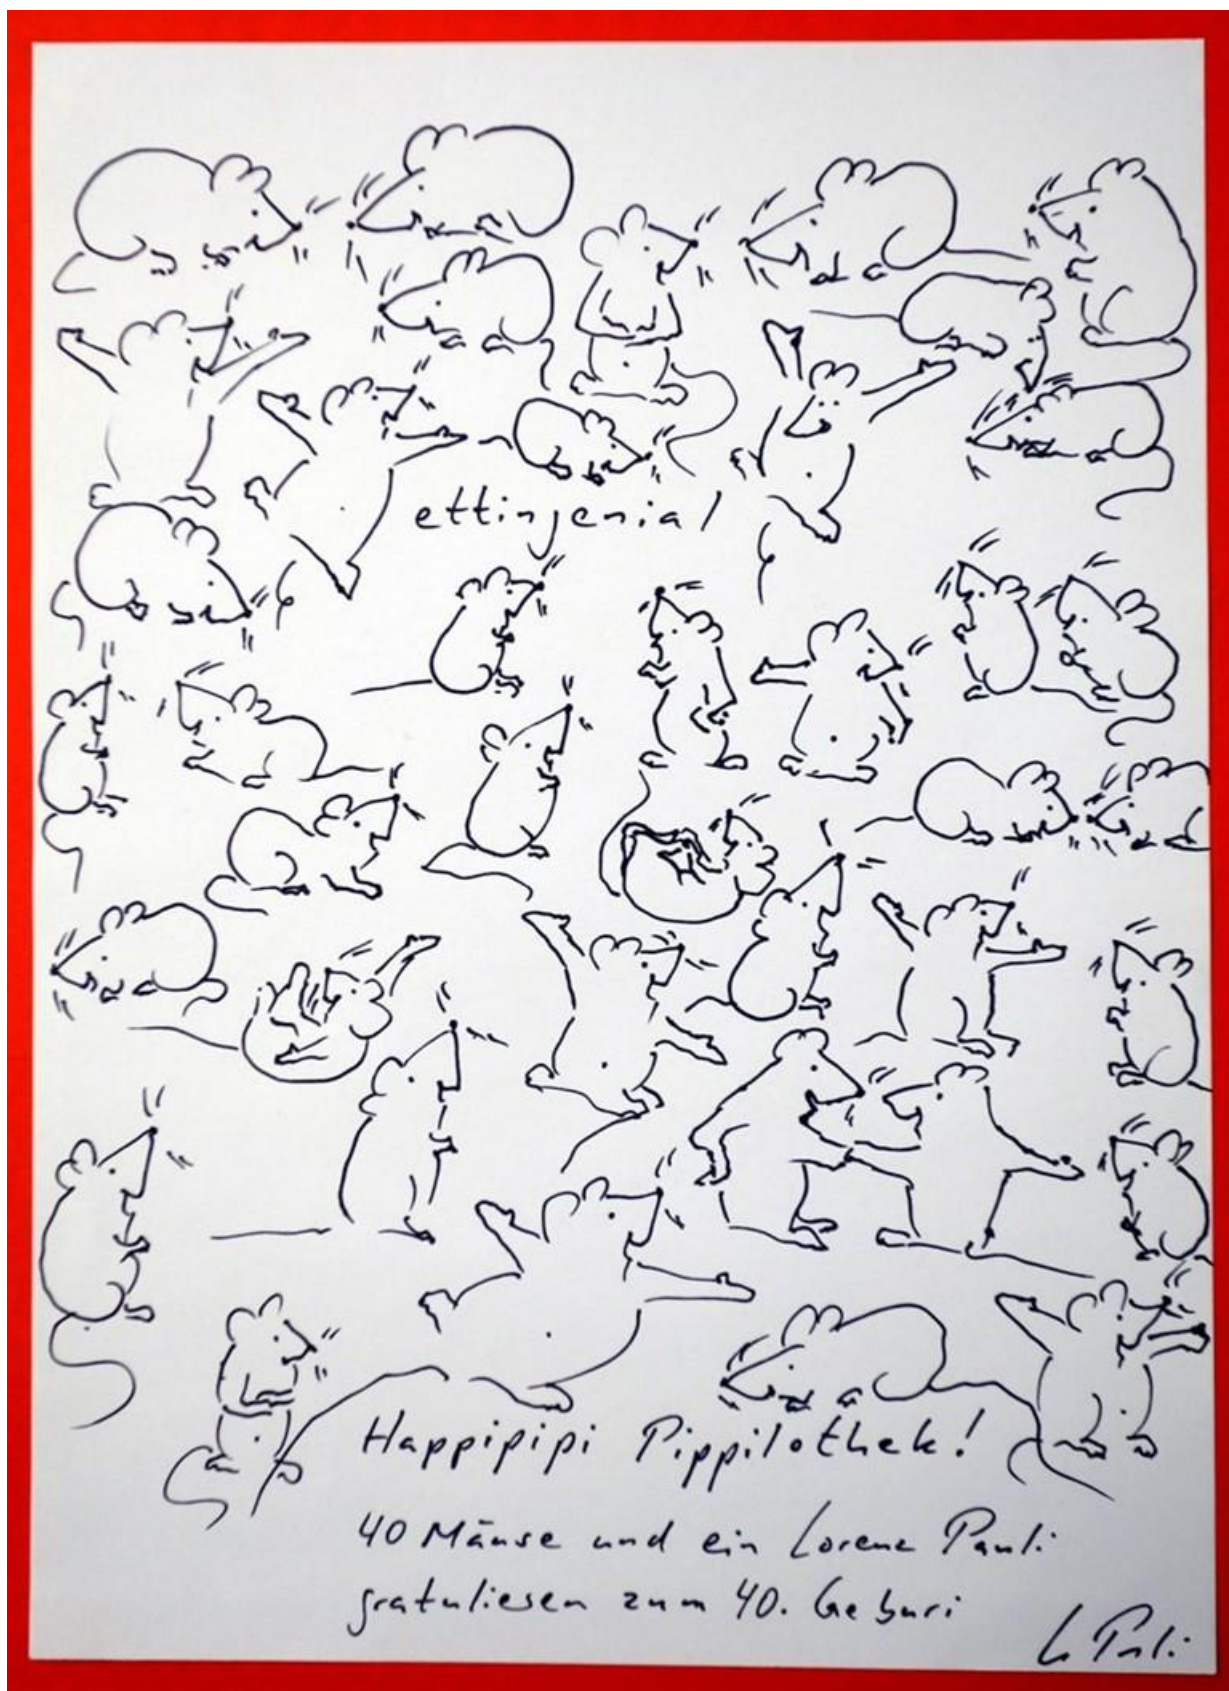 ettingenial
Happipipi Pippilothek!
40 Mäuse und ein Lorenz Pauli
gratulieren zum 40. Geburi
L Pauli